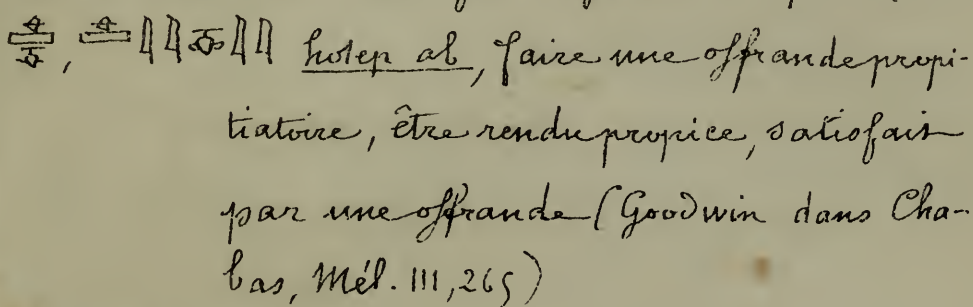 𓊵𓄣, 𓊵𓇋𓇋𓄣𓇋𓇋 hotep ab, faire une offrande propi-
tiatoire, être rendu propice, satisfait
par une offrande (Goodwin dans Cha-
bas, Mél. III, 265)